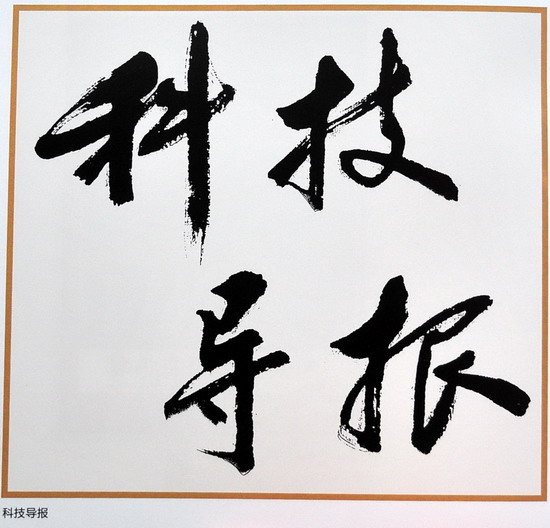 科技
导报
科技导报